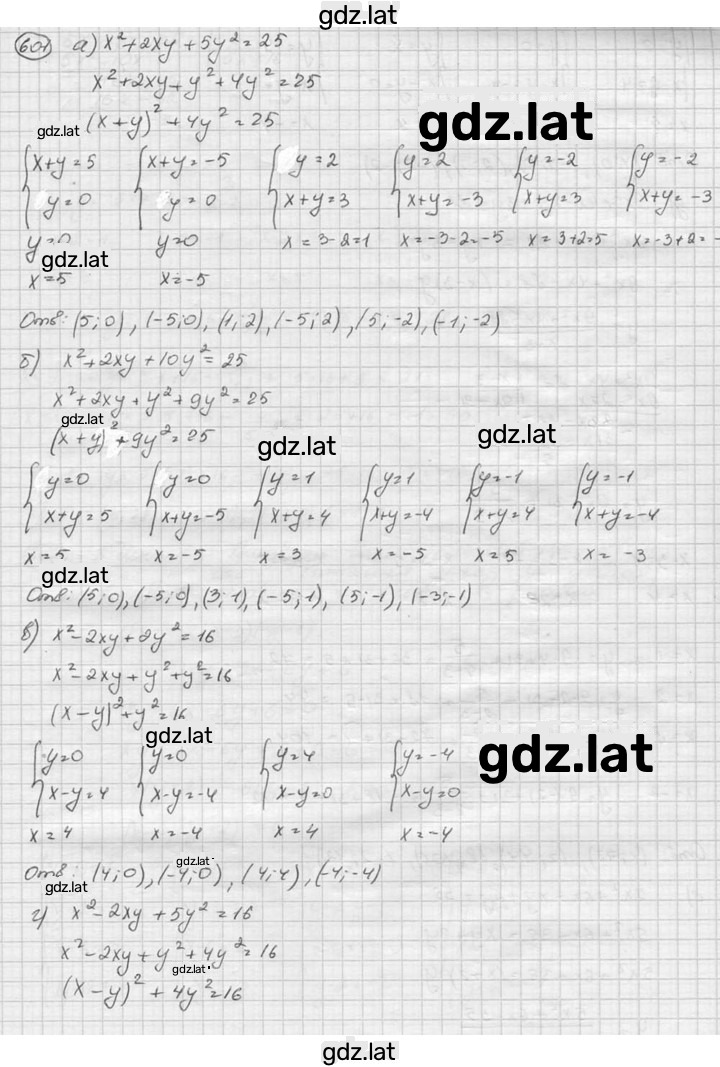 gdz.lat
601 а) x²+2xy+5y²=25
x²+2xy+y²+4y²=25
gdz.lat (x+y)²+4y²=25 gdz.lat
{x+y=5 {x+y=-5 {y=2 {y=2 {y=-2 {y=-2
{y=0 {y=0 {x+y=3 {x+y=-3 {x+y=3 {x+y=-3
y=0 y=0 x=3-2=1 x=-3-2=-5 x=3+2=5 x=-3+2=-
gdz.lat
x=5 x=-5
Отв: (5;0), (-5;0), (1;2), (-5;2), (5;-2), (-1;-2)
б) x²+2xy+10y²=25
x²+2xy+y²+9y²=25
gdz.lat
(x+y)²+9y²=25 gdz.lat gdz.lat
{y=0 {y=0 {y=1 {y=1 {y=-1 {y=-1
{x+y=5 {x+y=-5 {x+y=4 {x+y=-4 {x+y=4 {x+y=-4
x=5 x=-5 x=3 x=-5 x=5 x=-3
gdz.lat
Отв: (5;0), (-5;0), (3;1), (-5;1), (5;-1), (-3;-1)
в) x²-2xy+2y²=16
x²-2xy+y²+y²=16
(x-y)²+y²=16
gdz.lat gdz.lat
{y=0 {y=0 {y=4 {y=-4
{x-y=4 {x-y=-4 {x-y=0 {x-y=0
x=4 x=-4 x=4 x=-4
gdz.lat
Отв: (4;0), (-4;0), (4;4), (-4;-4)
gdz.lat
г) x²-2xy+5y²=16
x²-2xy+y²+4y²=16
gdz.lat
(x-y)²+4y²=16
gdz.lat